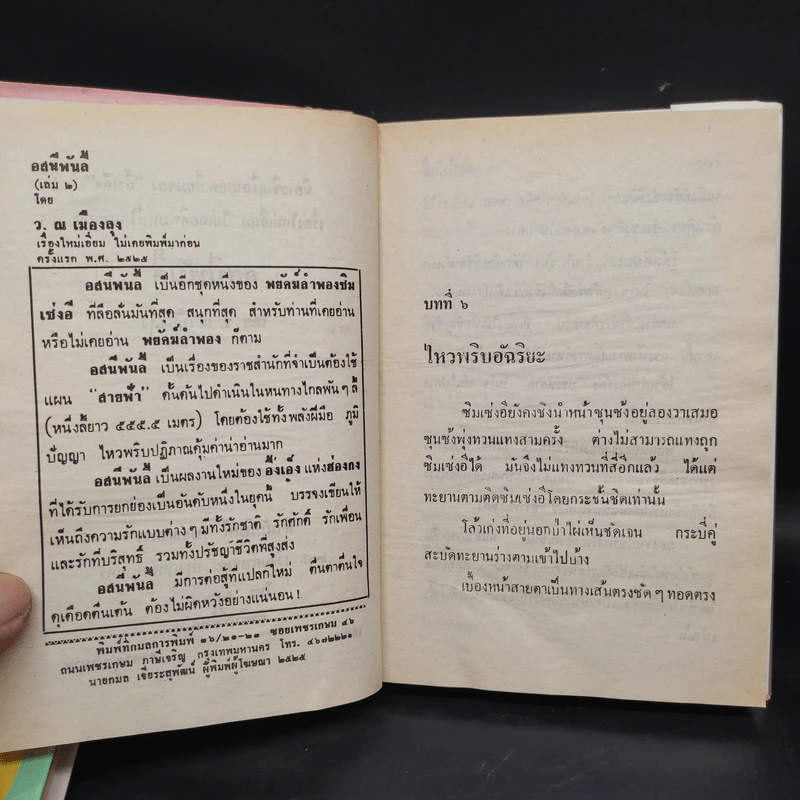 อสนีพันลี้
(เล่ม ๒)
โดย
ว. ณ เมืองลุง
เรื่องใหม่เอี่ยม ไม่เคยพิมพ์มาก่อน
ครั้งแรก พ.ศ. ๒๕๒๕
อสนีพันลี้ เป็นอีกชุดหนึ่งของ พยัคฆ์ลำพองซิม
เซ่งอี้ ที่ลือลั่นมันที่สุด สนุกที่สุด สำหรับท่านที่เคยอ่าน
หรือไม่เคยอ่าน พยัคฆ์ลำพอง ก็ตาม
อสนีพันลี้ เป็นเรื่องของราชสำนักที่จำเป็นต้องใช้
แผน "สายฟ้า" ดั้นด้นไปดำเนินในหนทางไกลพัน ๆ ลี้
(หนึ่งลี้ยาว ๕๕๕.๕ เมตร) โดยต้องใช้ทั้งพลังฝีมือ ภูมิ
ปัญญา ไหวพริบปฏิภาณคุ้มค่าน่าอ่านมาก
อสนีพันลี้ เป็นผลงานใหม่ของ อึ้งเอ็ง แห่งฮ่องกง
ที่ได้รับการยกย่องเป็นอันดับหนึ่งในยุคนี้ บรรจงเขียนให้
เห็นถึงความรักแบบต่าง ๆ มีทั้งรักชาติ รักศักดิ์ รักเพื่อน
และรักที่บริสุทธิ์ รวมทั้งปรัชญาชีวิตที่สูงส่ง
อสนีพันลี้ มีการต่อสู้ที่แปลกใหม่ ตื่นตาตื่นใจ
ดุเดือดตื่นเต้น ต้องไม่ผิดหวังอย่างแน่นอน !
พิมพ์ที่กมลการพิมพ์ ๑๖/๒๐-๒๑ ซอยเพชรเกษม ๔๖
ถนนเพชรเกษม ภาษีเจริญ กรุงเทพมหานคร โทร. ๔๖๗๒๒๒๑
นายกมล เจียระสุพัฒน์ ผู้พิมพ์ผู้โฆษณา ๒๕๒๕
บทที่ ๖
ไหวพริบอัฉริยะ
ซิมเซ่งอี้ยังคงชิงนำหน้าซุนซ้งอยู่ลองวาเสมอ
ซุนซ้งพุ่งทวนแทงสามครั้ง ต่างไม่สามารถแทงถูก
ซิมเซ่งอี้ได้ มันจึงไม่แทงทวนที่สี่อีกแล้ว ได้แต่
ทะยานตามติดซิมเซ่งอี้โดยกระชั้นชิดเท่านั้น
โล้วเก่งที่อยู่นอกป่าไผ่เห็นชัดเจน กระบี่คู่
สะบัดทะยานร่างตามเข้าไปบ้าง
เบื้องหน้าสายตาเป็นทางเส้นตรงชัด ๆ ทอดตรง